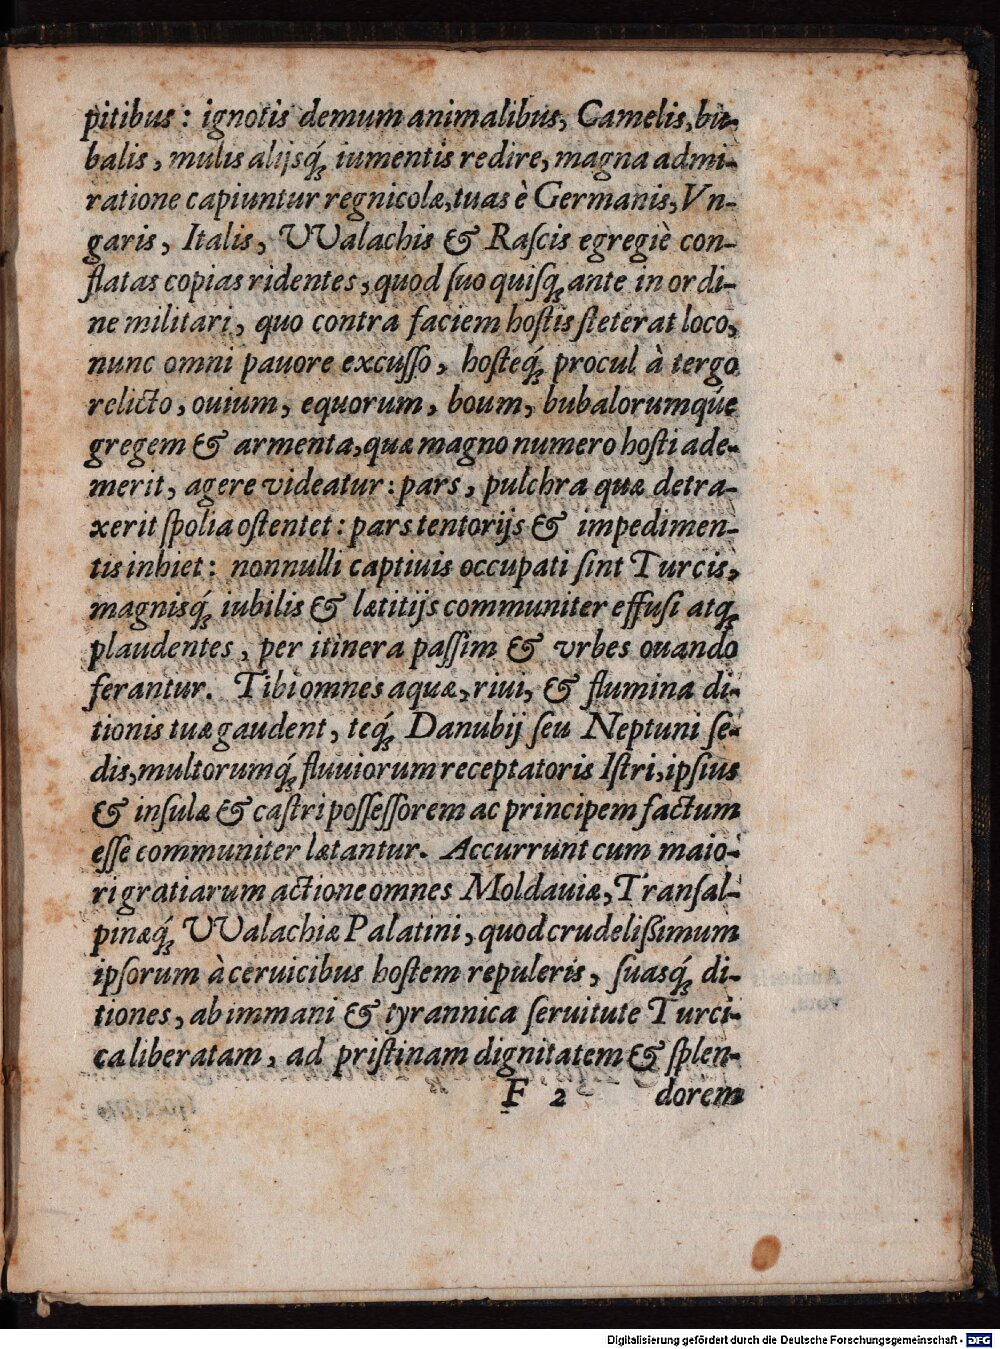 pitibus: ignotis demum animalibus, Camelis, bu-
balis, mulis alijsq́; iumentis redire, magna admi-
ratione capiuntur regnicolæ, tuas è Germanis, Vn-
garis, Italis, VValachis & Rascis egregiè con-
flatas copias ridentes, quod suo quisq; ante in ordi-
ne militari, quo contra faciem hostis steterat loco,
nunc omni pauore excusso, hosteq́; procul à tergo
relicto, ouium, equorum, boum, bubalorumque
gregem & armenta, quæ magno numero hosti ade-
merit, agere videatur: pars, pulchra quæ detra-
xerit spolia ostentet: pars tentorijs & impedimen-
tis inhiet: nonnulli captiuis occupati sint Turcis,
magnisq́; iubilis & lætitijs communiter effusi atq;
plaudentes, per itinera passim & vrbes ouando
ferantur. Tibi omnes aquæ, riui, & flumina di-
tionis tuæ gaudent, teq́; Danubij seu Neptuni se-
dis, multorumq́; fluuiorum receptatoris Istri, ipsius
& insulæ & castri possessorem ac principem factum
esse communiter lætantur. Accurrunt cum maio-
ri gratiarum actione omnes Moldauiæ, Transal-
pinæq́; VValachiæ Palatini, quod crudelissimum
ipsorum à ceruicibus hostem repuleris, suasq́; di-
tiones, ab immani & tyrannica seruitute Turci-
ca liberatam, ad pristinam dignitatem & splen-
F 2 dorem
Digitalisierung gefördert durch die Deutsche Forschungsgemeinschaft - DFG